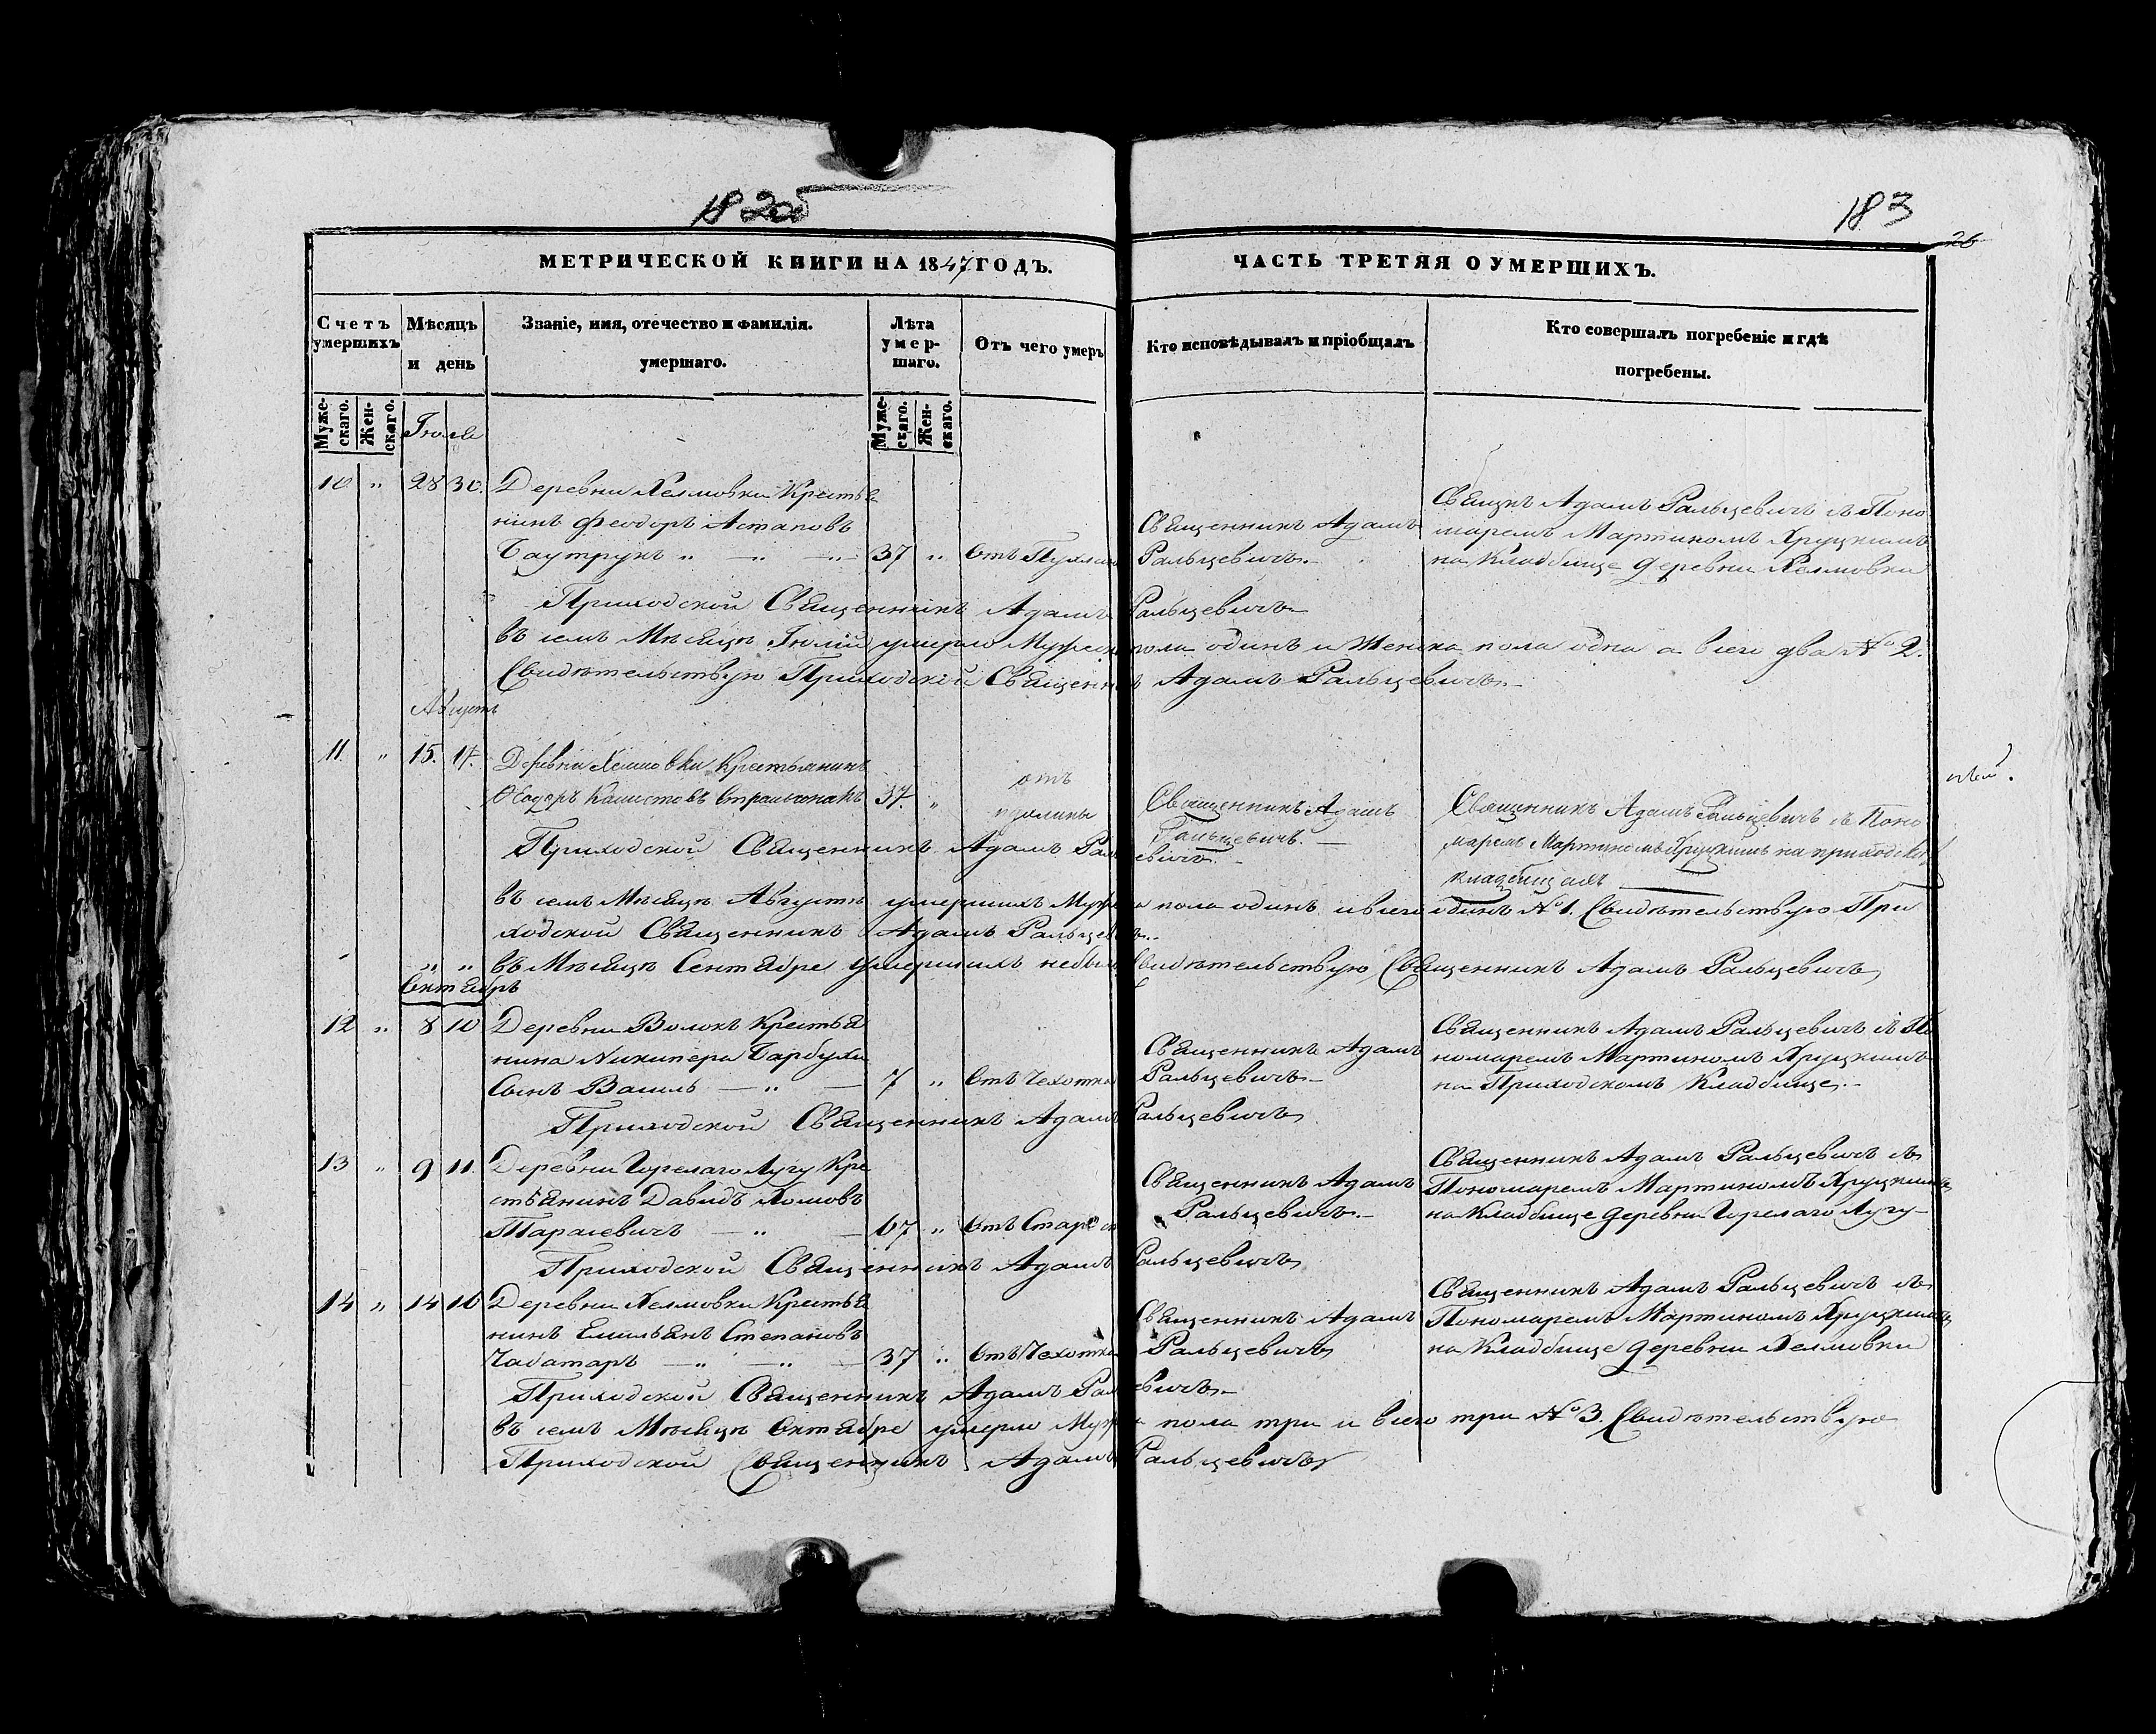 182об
183
26
МЕТРИЧЕСКОЙ КНИГИ НА 1847 ГОДЪ.
ЧАСТЬ ТРЕТЯЯ О УМЕРШИХЪ.
Счетъ умершихъ
Мѣсяцъ и день
Званіе, имя, отечество и фамилія.
умершаго.
Лѣта умер-
шаго.
Отъ чего умеръ
Кто исповѣдывалъ и пріобщалъ
Кто совершалъ погребеніе и гдѣ
погребены.
Муже-
скаго.
Жен-
скаго.
Іюль
Муже-
скаго.
Жен-
скаго.
10 " 28 30. Деревни Хелмовки Крестья
нинъ Феодоръ Астаповъ
37 " Отъ
Священникъ Адамъ
Ральцевичъ.
Адамъ Ральцевичъ съ Поно
маремъ Мартиномъ Хруцкимъ
на Кладбище деревни Хелмовки
Приходской Священникъ Адамъ Ральцевичъ
въ семъ Мѣсяцѣ Іюлій умерло Мужеска пола одинъ и Женска пола одна а всего два № 2.
Свидѣтельствую Приходскій Священникъ Адамъ Ральцевичъ.
Августъ
11 " 15. 17. Деревни Хелмовки Крестьянинъ
Ѳеодоръ 37. "
отъ
Священникъ Адамъ
Ральцевичъ.
Священникъ Адамъ Ральцевичъ съ Поно
маремъ Мартиномъ Хруцкимъ на приходскихъ
кладбищахъ
Приходской Священникъ Адамъ Ральцевичъ.
въ семъ Мѣсяцѣ Августѣ умершихъ Мужеска пола одинъ и всего одинъ № 1. Свидѣтельствую При
ходской Священникъ Адамъ Ральцевичъ.
" " въ Мѣсяцѣ Сентябре умершихъ небыло Свидѣтельствую Священникъ Адамъ Ральцевичъ
Октябрь
12 " 8 10 Деревни Волокъ Крестья
нина Никипера
Сынъ Василь — " — 7 " Отъ Чехотки
Священникъ Адамъ
Ральцевичъ.
Священникъ Адамъ Ральцевичъ съ По
номаремъ Мартиномъ Хруцкимъ
на Приходскомъ Кладбище.
Приходской Священникъ Адамъ Ральцевичъ
13 " 9 11. Деревни Горелаго Лугу Кре
стьянинъ Давидъ Хомовъ
Тарасевичъ — " — 67 " Отъ Старости
Священникъ Адамъ
Ральцевичъ.
Священникъ Адамъ Ральцевичъ съ
Пономаремъ Мартиномъ Хруцкимъ
на Кладбище деревни Горелаго Лугу
Приходской Священникъ Адамъ Ральцевичъ
14 " 14 16 Деревни Хелмовки Крестья
нинъ Емильянъ Степановъ
Чабатаръ — " — " — 37 " Отъ Чехотки
Священникъ Адамъ
Ральцевичъ
Священникъ Адамъ Ральцевичъ съ
Пономаремъ Мартиномъ Хруцкимъ
на Кладбище деревни Хелмовки
Приходской Священникъ Адамъ Ральцевичъ.
въ семъ Мѣсяцѣ Октябре умерло Мужеска пола три и всего три № 3. Свидѣтельствую
Приходской Священникъ Адамъ Ральцевичъ